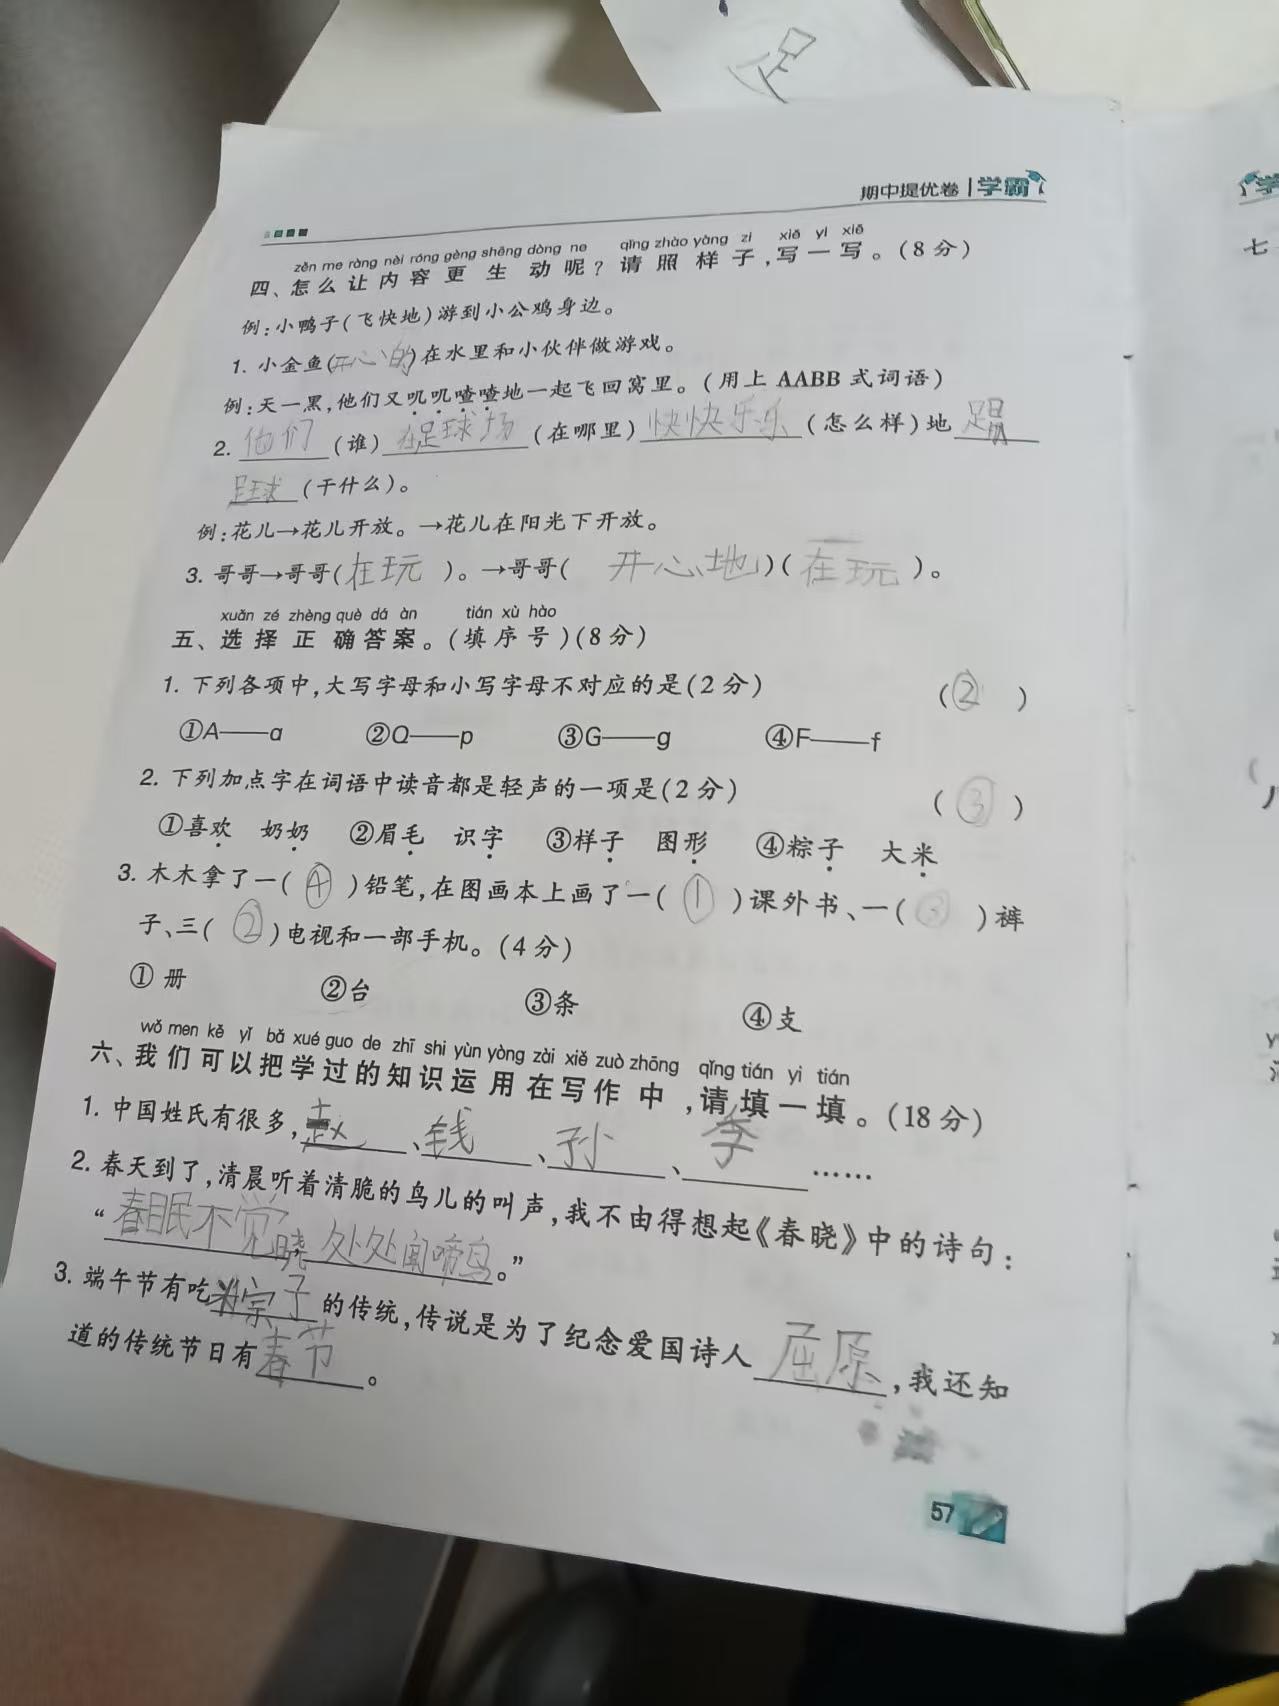 足
期中提优卷 学霸
zěn me ràng nèi róng gèng shēng dòng ne qǐng zhào yàng zi xiě yi xiě
四、怎么让内容更生动呢?请照样子,写一写。(8分)
例:小鸭子(飞快地)游到小公鸡身边。
1. 小金鱼(开心的)在水里和小伙伴做游戏。
例:天一黑,他们又叽叽喳喳地一起飞回窝里。(用上AABB式词语)
2. 他们(谁)在足球场(在哪里)快快乐乐(怎么样)地踢
足球(干什么)。
例:花儿→花儿开放。→花儿在阳光下开放。
3. 哥哥→哥哥(在玩)。→哥哥(开心地)(在玩)。
xuǎn zé zhèng què dá àn tián xù hào
五、选择正确答案。(填序号)(8分)
1. 下列各项中,大写字母和小写字母不对应的是(2分) (②)
①A——a ②Q——p ③G——g ④F——f
2. 下列加点字在词语中读音都是轻声的一项是(2分) (③)
①喜欢 奶奶 ②眉毛 识字 ③样子 图形 ④粽子 大米
3. 木木拿了一(④)铅笔,在图画本上画了一(①)课外书、一(③)裤
子、三(②)电视和一部手机。(4分)
①册 ②台 ③条 ④支
wǒ men kě yǐ bǎ xué guo de zhī shi yùn yòng zài xiě zuò zhōng qǐng tián yi tián
六、我们可以把学过的知识运用在写作中,请填一填。(18分)
1. 中国姓氏有很多,赵、钱、孙、李……
2. 春天到了,清晨听着清脆的鸟儿的叫声,我不由得想起《春晓》中的诗句:
“春眠不觉晓 处处闻啼鸟。”
3. 端午节有吃粽子的传统,传说是为了纪念爱国诗人屈原,我还知
道的传统节日有春节。
57
学
七